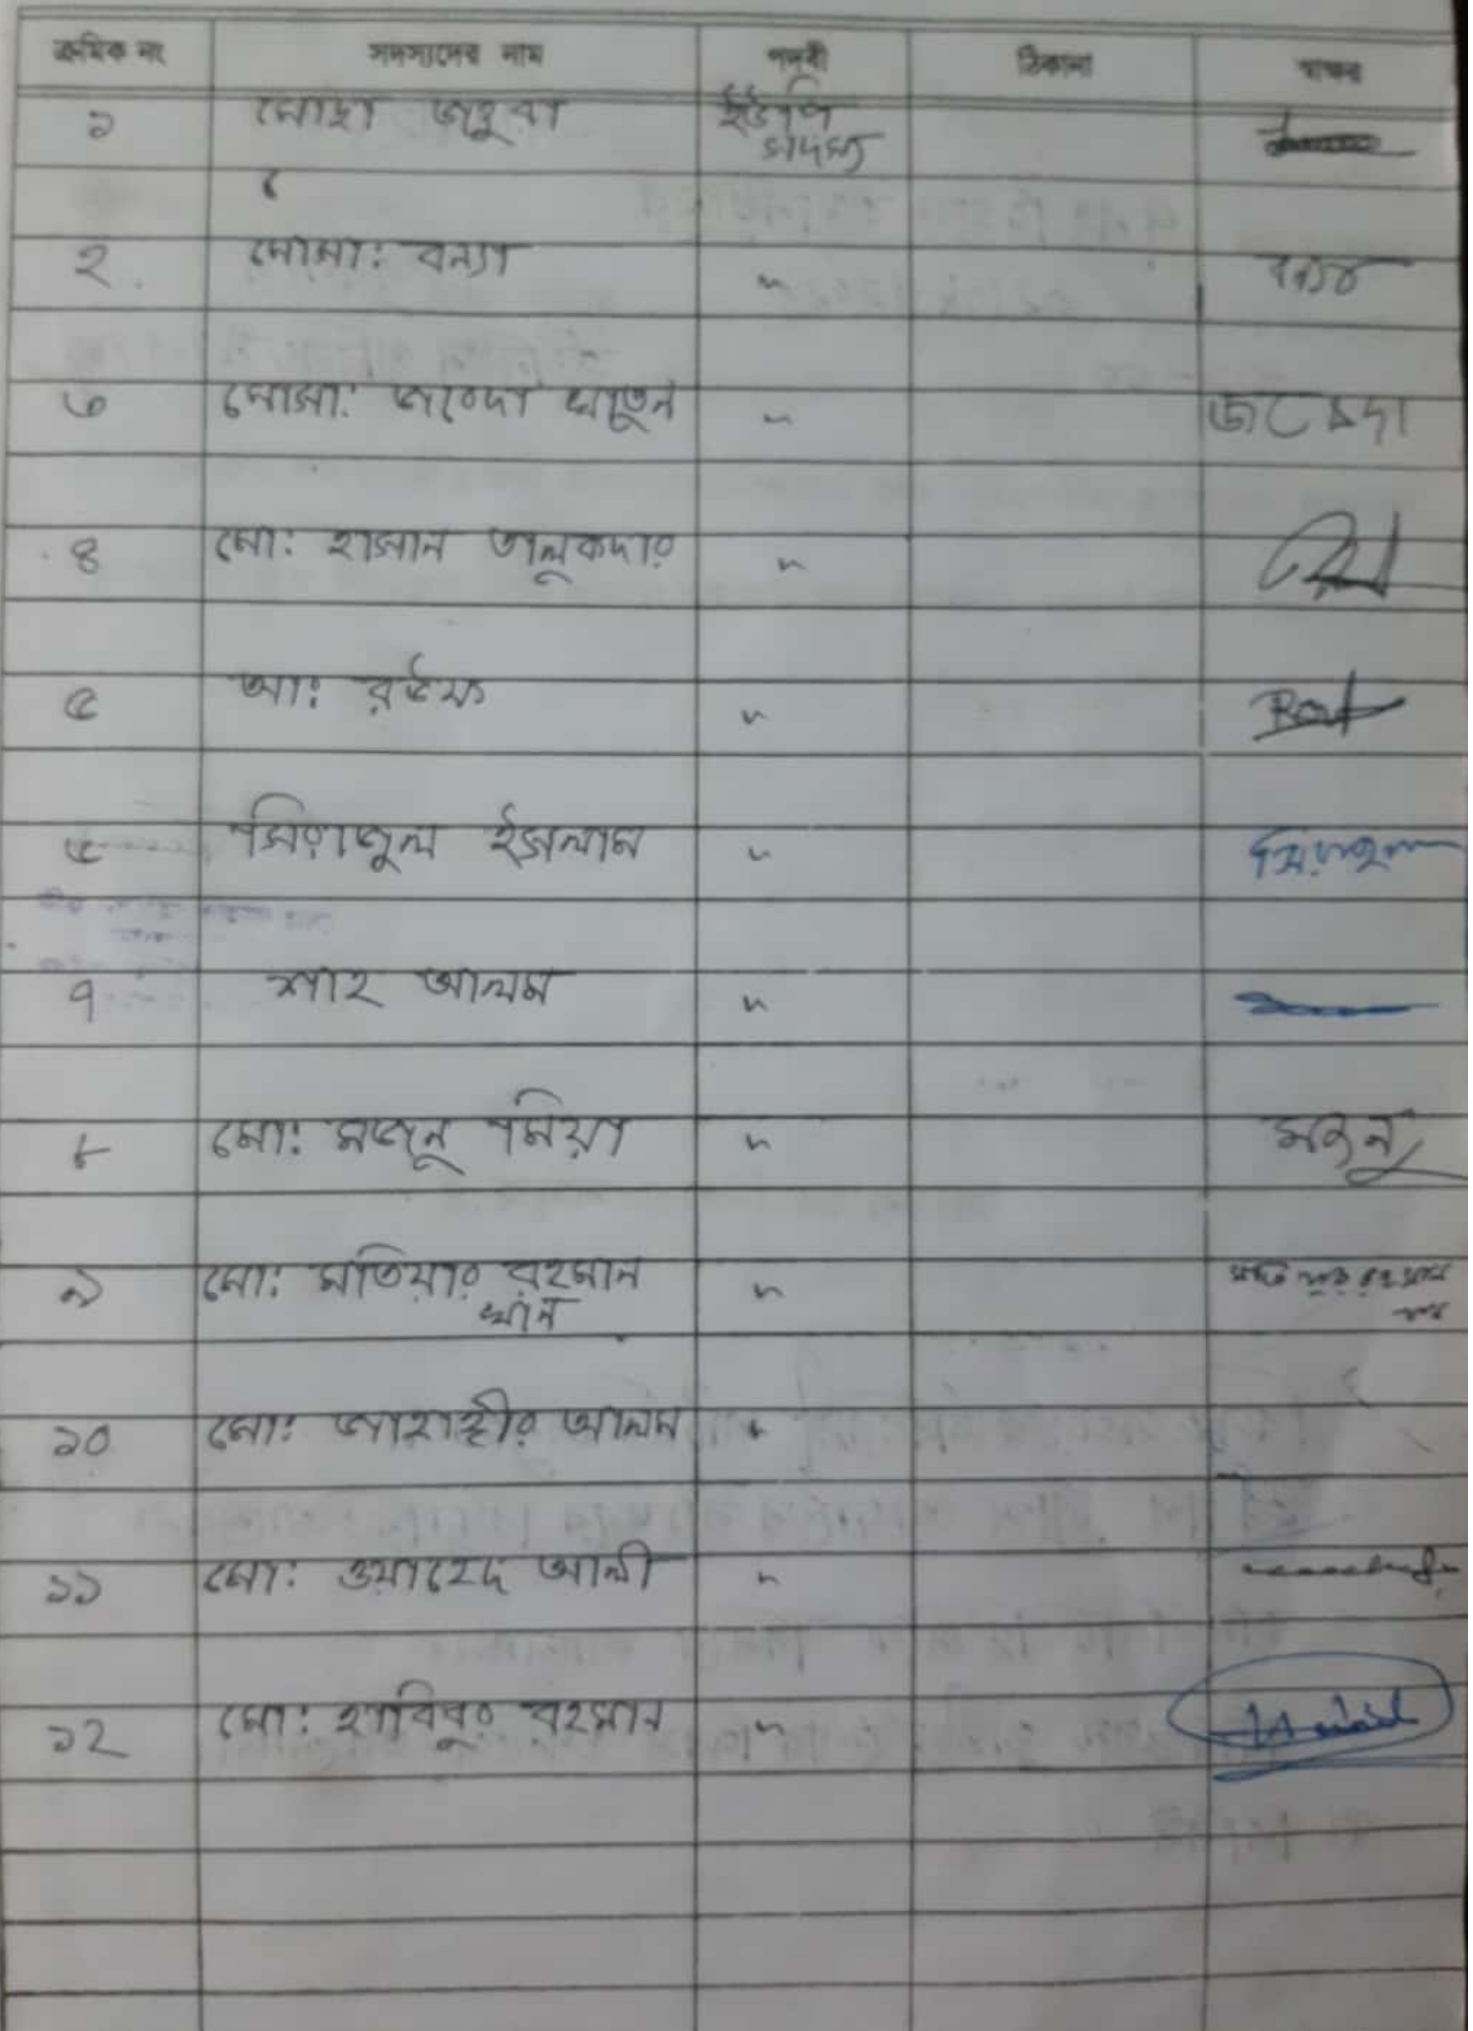 ক্রমিক নং সদস্যদের নাম পদবী ঠিকানা স্বাক্ষর
১ মোছা ইউপি
সদস্য
২ মোসা: বন্যা "
৩ মোসা: জবেদা খাতুন " জবেদা
৪ মো: হাসান তালুকদার "
৫ আ: রউফ " Rouf
৫ সিরাজুল ইসলাম " সিরাজুল
৭ শাহ আলম "
৮ মো: মজনু মিয়া " মজনু
৯ মো: মতিয়ার রহমান "
খান
১০ মো: জাহাঙ্গীর আলম "
১১ মো: ওয়াহেদ আলী "
১২ মো: হাবিবুর রহমান "